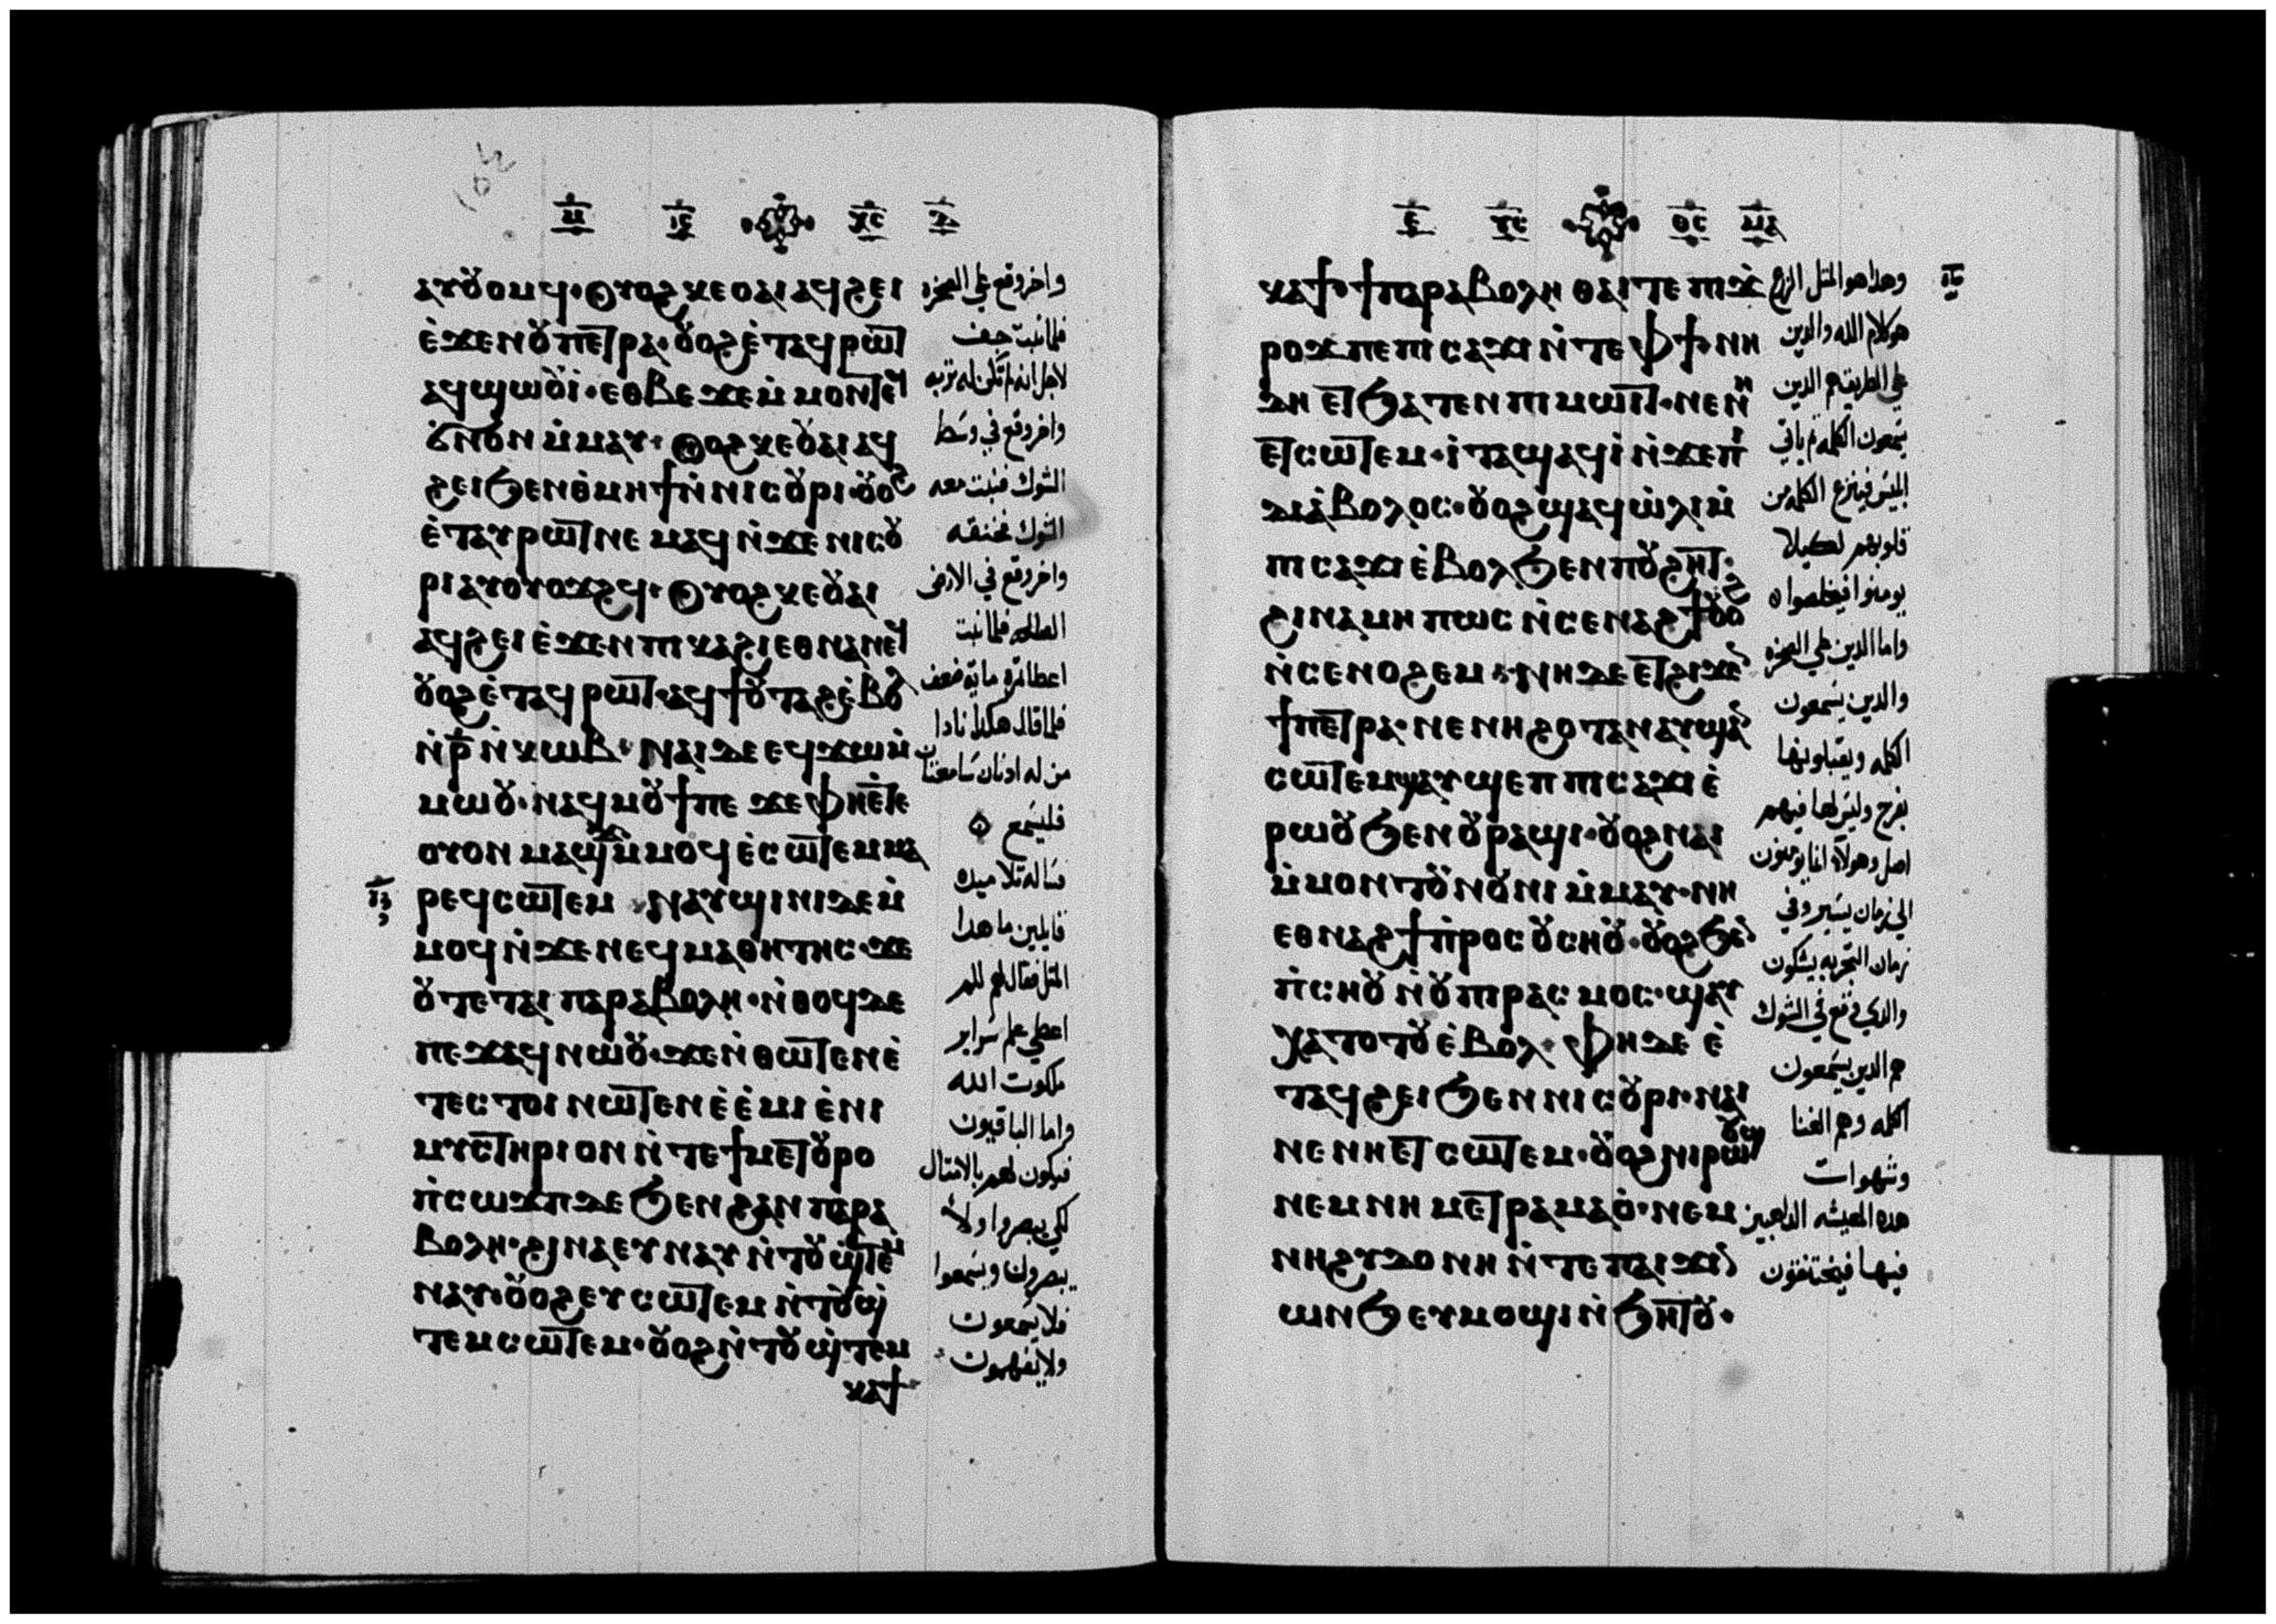 ⲁⲩⲟⲩⲟⲙϥ· ⲟⲩⲟϩ ⲕⲉⲟⲁⲓ ⲁϥϩⲉⲓ
ⲉ̀ϫⲉⲛ ⲟⲩⲡⲉⲧⲣⲁ· ⲟⲩⲟϩ ⲉ̀ⲧⲁϥⲣⲱⲧ
ⲁϥϣⲱⲟⲩⲓ· ⲉⲑⲃⲉ ϫⲉ ⲙ̀ⲙⲟⲛⲧⲉϥ
ⲛⲟⲩⲛ ⲙ̀ⲙⲁⲩ· ⲟⲩⲟϩ ⲕⲉⲟⲩⲁⲓ ⲁϥ
ϩⲉⲓ ϧⲉⲛ ⲑ̀ⲙⲏϯ ⲛ̀ⲛⲓⲥⲟⲩⲣⲓ· ⲟⲩⲟϩ
ⲉ̀ⲧⲁⲩⲣⲱⲧ ⲛⲉⲙⲁϥ ⲛ̀ϫⲉ ⲛⲓⲥⲟⲩ
ⲣⲓ ⲁⲩⲟⲩⲟϫϩϥ· ⲟⲩⲟϩ ⲕⲉⲟⲩⲁⲓ
ⲁϥϩⲉⲓ ⲉ̀ϫⲉⲛ ⲡⲓⲕⲁϩⲓ ⲉⲑⲛⲁⲛⲉϥ
ⲟⲩⲟϩ ⲉ̀ⲧⲁϥⲣⲱⲧ· ⲁϥϯⲟⲩⲧⲁϩ ⲉ̀ⲃⲟⲗ
ⲛ̀ⲣ̅ ⲛ̀ⲕⲱⲃ· ⲛⲁⲓ ⲇⲉ ⲉϥϫⲱ ⲙ̀
ⲙⲱⲟⲩ· ⲛⲁϥⲙⲟⲩϯ ⲡⲉ ϫⲉ ⲫⲏ ⲉ̀ⲧⲉ
ⲟⲩⲟⲛ ⲙⲁϣϫ ⲙ̀ⲙⲟϥ ⲉ̀ⲥⲱⲧⲉⲙ ⲙⲁ
ⲓ̅ⲍ̅
ⲣⲉϥⲥⲱⲧⲉⲙ ⲛⲁⲩϣⲓⲛⲓ ⲇⲉ ⲙ̀
ⲙⲟϥ ⲛ̀ϫⲉ ⲛⲉϥⲙⲁⲑⲏⲧⲏⲥ· ϫⲉ
ⲟⲩ ⲧⲉ ⲧⲁⲓ ⲡⲁⲣⲁⲃⲟⲗⲏ· ⲛ̀ⲑⲟϥ ⲇⲉ
ⲡⲉϫⲁϥ ⲛⲱⲟⲩ· ϫⲉ ⲛ̀ⲑⲱⲧⲉⲛ ⲉ̀
ⲧⲉⲥⲧⲟⲓ ⲛⲱⲧⲉⲛ ⲉ̀ⲉ̀ⲙⲓ ⲉ̀ⲛⲓ
ⲙⲩⲥⲧⲏⲣⲓⲟⲛ ⲛ̀ⲧⲉ ϯⲙⲉⲧⲟⲩⲣⲟ
ⲡ̀ⲥⲱϫⲡ ⲇⲉ ϧⲉⲛ ϩⲁⲛ ⲡⲁⲣⲁ
ⲃⲟⲗⲏ· ϩⲓⲛⲁ ⲉⲩⲛⲁⲩ ⲛ̀ⲧⲟⲩϣ̀ⲧⲉⲙ
ⲛⲁⲩ· ⲟⲩⲟϩ ⲉⲩⲥⲱⲧⲉⲙ ⲛ̀ⲧⲟⲩϣ̀
ⲧⲉⲙⲥⲱⲧⲉⲙ· ⲟⲩⲟϩ ⲛ̀ⲧⲟⲩϣ̀ⲧⲉⲙ
ⲕⲁϯ
واخر وقع علي الصخره
فلما نبت جف
لاجل انه لم تكن له تربه
واخر وقع في وسط
الشوك فنبت معه
الشوك فخنقه
واخر وقع في الارض
الصالحه فلما نبت
اعطا ثمرة ماية ضعف
فلما قال هكذا نادا
من له اذنان سامعتان
فليسمع
فساله تلاميذه
قايلين ما هذا
المثل فقال لهم لكم
اعطي علم سراير
ملكوت الله
واما الباقيون
فيكون لهم بالامثال
لكي يبصروا ولا
يبصرون ويسمعوا
فلا يسمعون
ولا يفهمون
ⲕⲁϯ· ϯⲡⲁⲣⲁⲃⲟⲗⲏ ⲑⲁⲓ ⲧⲉ ⲡⲓϫ̀
ⲣⲟϫ ⲡⲉ ⲡⲓⲥⲁϫⲓ ⲛ̀ⲧⲉ ⲫϯ· ⲛⲏ
ⲇⲏ ⲉⲧϧⲁⲧⲉⲛ ⲡⲓⲙⲱⲓⲧ· ⲛⲉ ⲛⲏ
ⲉⲧⲥⲱⲧⲉⲙ· ⲓ̀ⲧⲁ ϣⲁϥⲓ̀ ⲛ̀ϫⲉ ⲡⲓ
ⲇⲓⲁ̀ⲃⲟⲗⲟⲥ· ⲟⲩⲟϩ ϣⲁϥⲱ̀ⲗⲓ ⲙ̀
ⲡⲓⲥⲁϫⲓ ⲉ̀ⲃⲟⲗ ϧⲉⲛ ⲡⲟⲩϩⲏⲧ·
ϩⲓⲛⲁ ⲙⲏⲡⲱⲥ ⲛ̀ⲥⲉⲛⲁϩϯ ⲟⲩⲟϩ
ⲛ̀ⲥⲉⲛⲟϩⲉⲙ· ⲛⲏ ⲇⲉ ⲉⲧϩⲓϫⲉⲛ
ϯⲡⲉⲧⲣⲁ· ⲛⲉ ⲛⲏ ϩⲟⲧⲁⲛ ⲁⲩϣⲁⲛ
ⲥⲱⲧⲉⲙ ϣⲁⲩϣⲉⲡ ⲡⲓⲥⲁϫⲓ ⲉ̀
ⲣⲱⲟⲩ ϧⲉⲛ ⲟⲩⲣⲁϣⲓ· ⲟⲩⲟϩ ⲛⲁⲓ
ⲙ̀ⲙⲟⲛⲧⲟⲩ ⲛⲟⲩⲛⲓ ⲙ̀ⲙⲁⲩ· ⲛⲏ
ⲉⲑⲛⲁϩϯ ⲡ̀ⲣⲟⲥ ⲟⲩⲥⲏⲟⲩ· ⲟⲩⲟϩ ϧⲉⲛ
ⲡ̀ⲥⲏⲟⲩ ⲛ̀ⲟⲩⲡⲓⲣⲁⲥⲙⲟⲥ· ϣⲁⲩ
ⲭⲁⲧⲟⲧⲟⲩ ⲉ̀ⲃⲟⲗ· ⲫⲏ ⲇⲉ ⲉ̀
ⲧⲁϥϩⲉⲓ ϧⲉⲛ ⲛⲓⲥⲟⲩⲣⲓ· ⲛⲁⲓ
ⲛⲉ ⲛⲏ ⲉⲧⲥⲱⲧⲉⲙ· ⲟⲩⲟϩ ⲛⲓⲣⲱⲟⲩϣ
ⲛⲉⲙ ⲛⲏ ⲙⲉⲧⲣⲁⲙⲁⲟ̀· ⲛⲉⲙ
ⲛⲏ ϩⲩⲇⲟⲛⲏ ⲛ̀ⲧⲉ ⲡⲁⲓϫⲓⲛ
ⲱⲛϧ ⲉⲩⲙⲟϣⲓ ⲛ̀ϧⲏⲧⲟⲩ·
وهذا هو المثل الزرع
هو كلام الله والذين
علي الطريق هم الذين
يسمعون الكلمه ثم ياتي
ابليس فينزع الكلمه من
قلوبهم لكيلا
يومنوا فيخلصوا
واما الذين علي الصخره
والذين يسمعون
الكلمه ويقبلونها
بفرح وليس لها فيهم
اصل وهولآء انما يومنون
الي زمان يسير وفي
زمان التجربه يشكون
والذي وقع في الشوك
هم الذين يسمعون
الكلمه وهم الغنا
وشهوات
هذه المعيشه الذاهبين
فيها فيختنقون